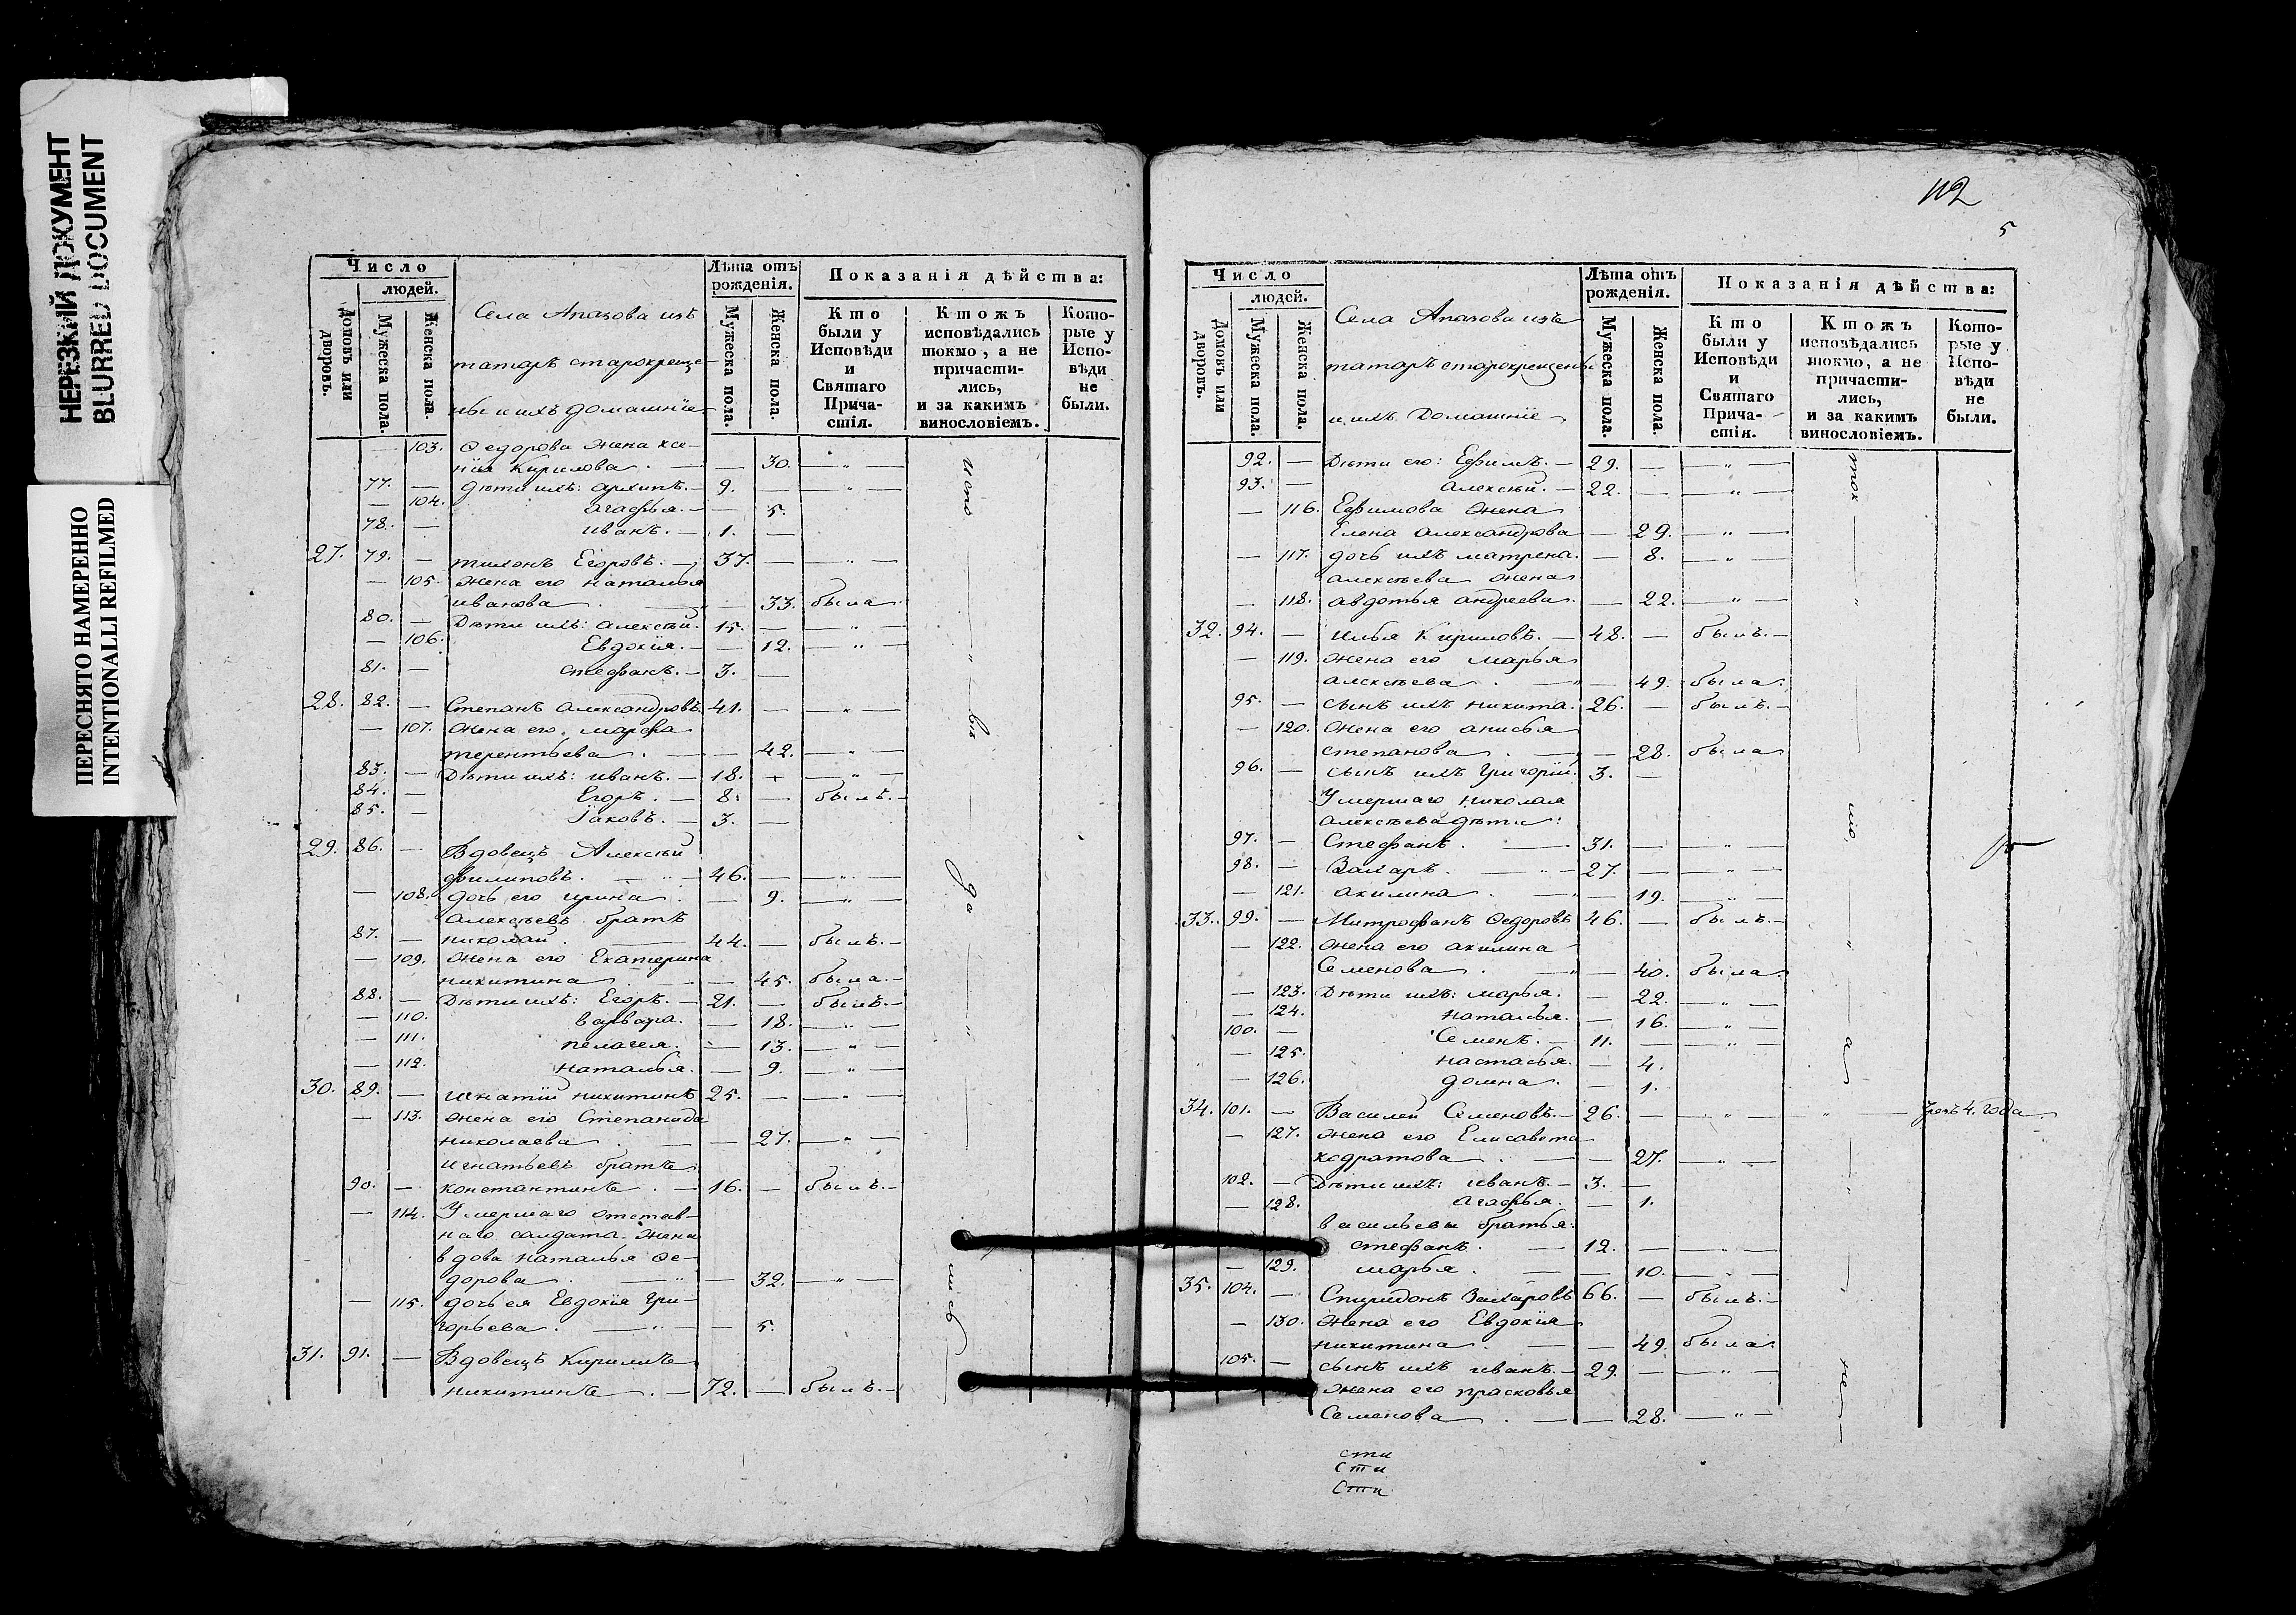 НЕРЕЗКИЙ ДОКУМЕНТ
BLURRED DOCUMENT
ПЕРЕСНЯТО НАМЕРЕННО
INTENTIONALLI REFILMED
Число
людей.
Домовъ или дворовъ.
Мужеска пола.
Женска пола.
Села Апазова изъ
татаръ старокреще-
ны и ихъ домашніе
Лѣта отъ рожденія.
Мужеска пола.
Женска пола.
Показанія дѣйства:
Кто были у Исповѣди и Святаго Прича-стія.
Ктожъ исповѣдались токмо, а не причасти-лись, и за какимъ винословіемъ.
Кото-рые у Испо-вѣди не были.
— 103. Ѳедорова жена ксе-
нія Кирилова. — — 30. — „ —
77. — Дѣти ихъ: архипъ. — 9. — — „ —
— 104. агафья. — — 5.
78. — иванъ. — 1. —
27. 79. — тихонъ Егоровъ. — 37. — — „ —
— 105. жена его наталья
иванова — — 33. была.
80. — Дѣти ихъ: алексѣй. 15. — — „ —
— 106. Евдокія. — — 12. — „ —
81. — стефанъ. — 3. —
28. 82. — Степанъ Александровъ. 41. — — „ —
— 107. жена его марфа
терентьева — — 42. — „ —
83. — Дѣти ихъ: иванъ. — 18. — — „ —
84. — Егоръ. — 8. — былъ. —
85. — Іаковъ. — 3. —
29. 86. — Вдовецъ Алексѣй
филиповъ. — „ — 46. — — „ —
— 108. дочь его ирина. — 9. — „ —
Алексѣевъ братъ
87. — николай. — 44. — былъ. —
— 109. жена его Екатерина
никитина — — 45. была. —
88. — Дѣти ихъ: Егоръ. — 21. — былъ. —
— 110. варвара. — 18. — „ —
— 111. пелагея. — 13. — „ —
— 112. наталья. — 9. — „ —
30. 89. — игнатій никитинъ 25. — — „ —
— 113. жена его Степанида
николаева — — 27. — „ —
игнатьевъ братъ
90. — константинъ. — 16. — былъ. —
— 114. Умершаго отстав-
наго солдата жена
вдова наталья Ѳе-
дорова. — „ — — 32. — „ —
— 115. дочь ея Евдокія гри-
горьева. — „ — — 5.
31. 91. — Вдовецъ Кирилъ
никитинъ. — 72. — былъ. —
испо
вѣ
да
лись
112
5
Число
людей.
Домовъ или дворовъ.
Мужеска пола.
Женска пола.
Села Апазова изъ
татаръ старокрещены
и ихъ домашніе
Лѣта отъ рожденія.
Мужеска пола.
Женска пола.
Показанія дѣйства:
Кто были у Исповѣди и Святаго Прича-стія.
Ктожъ исповѣдались токмо, а не причасти-лись, и за какимъ винословіемъ.
Кото-рые у Испо-вѣди не были.
92. — Дѣти его: Ефимъ. — 29. — — „ —
93. — алексѣй. — 22. — — „ —
— 116. Ефимова жена
Елена александрова — 29. — „ —
— 117. дочь ихъ матрена. — 8. — „ —
алексѣева жена
— 118. авдотья андреева. — 22. — „ —
32. 94. — илья Кириловъ. — 48. — былъ. —
— 119. жена его марья
алексѣева. — — 49. была.
95. — сынъ ихъ никита. 26. — былъ. —
— 120. жена его анисья
степанова. — — 28. была
96. — сынъ ихъ григорій. 3. —
Умершаго николая
алексѣева дѣти:
97. — Стефанъ. — 31. — — „ —
98. — Захаръ. — 27. — — „ —
— 121. акилина. — 19. — „ —
33. 99. — Митрофанъ Ѳедоровъ 46. — былъ. —
— 122. жена его акилина
Семенова. — — 40. была.
— 123. Дѣти ихъ: марья. — 22. — „ —
— 124. наталья. — 16. — „ —
100. — Семенъ. — 11. — — „ —
— 125. настасья. — 4.
— 126. домна. — 1.
34. 101. — Василей Семеновъ. — 26. — — „ — „ —
— 127. жена его Елисавета
кодратова. — — 27. — „ —
102. — Дѣти ихъ: иванъ. — 3. —
— 128. агафья. — 1.
васильевы братья:
стефанъ. — 12. — — „ —
— 129. марья. — — 10. — „ —
35. 104. — Спиридонъ Захаровъ 66. — былъ. —
— 130. жена его Евдокія
никитина. — — 49. была.
105. — сынъ ихъ иванъ. — 29. — — „ —
жена его прасковья
Семенова. — — 28. — „ —
ток
мо,
а
не
сти
сти
сти